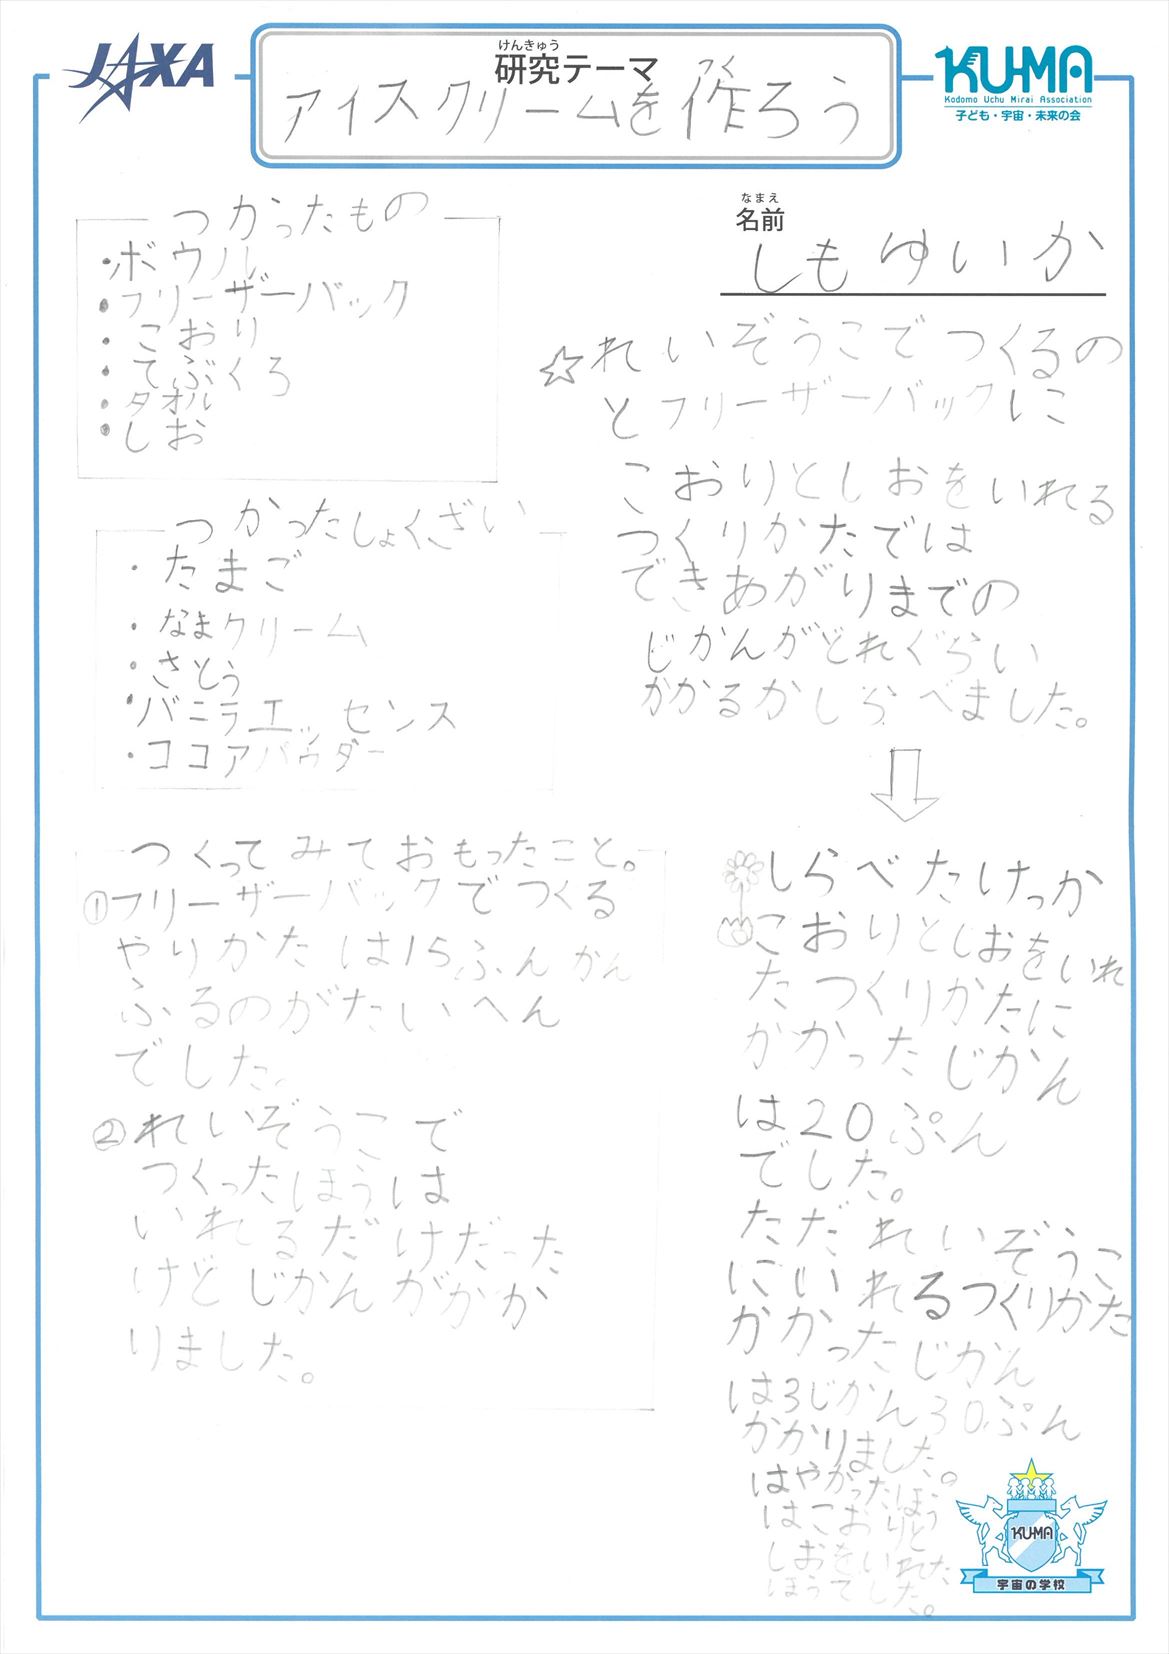 JAXA
けんきゅう
研究テーマ
つく
アイスクリームを作ろう
KU-MA
Kodomo Uchu Mirai Association
子ども・宇宙・未来の会
なまえ
名前
しもゆいか
つかったもの
・ボウル
・フリーザーバック
・こおり
・てぶくろ
・タオル
・しお
つかったしょくざい
・たまご
・なまクリーム
・さとう
・バニラエッセンス
・ココアパウダー
つくってみておもったこと。
①フリーザーバックでつくる
やりかたは15ふんかん
ふるのがたいへん
でした。
②れいぞうこで
つくったほうは
いれるだけだった
けどじかんがかか
りました。
☆れいぞうこでつくるの
とフリーザーバックに
こおりとしおをいれる
つくりかたでは
できあがりまでの
じかんがどれぐらい
かかるかしらべました。
しらべたけっか
こおりとしおをいれ
たつくりかたに
かかったじかん
は20ぷん
でした。
ただれいぞうこ
にいれるつくりかた
かかったじかん
は3じかん30ぷん
かかりました。
はやかったほう
はこおりと
しおをいれた
ほうでした。
KU-MA
宇宙の学校